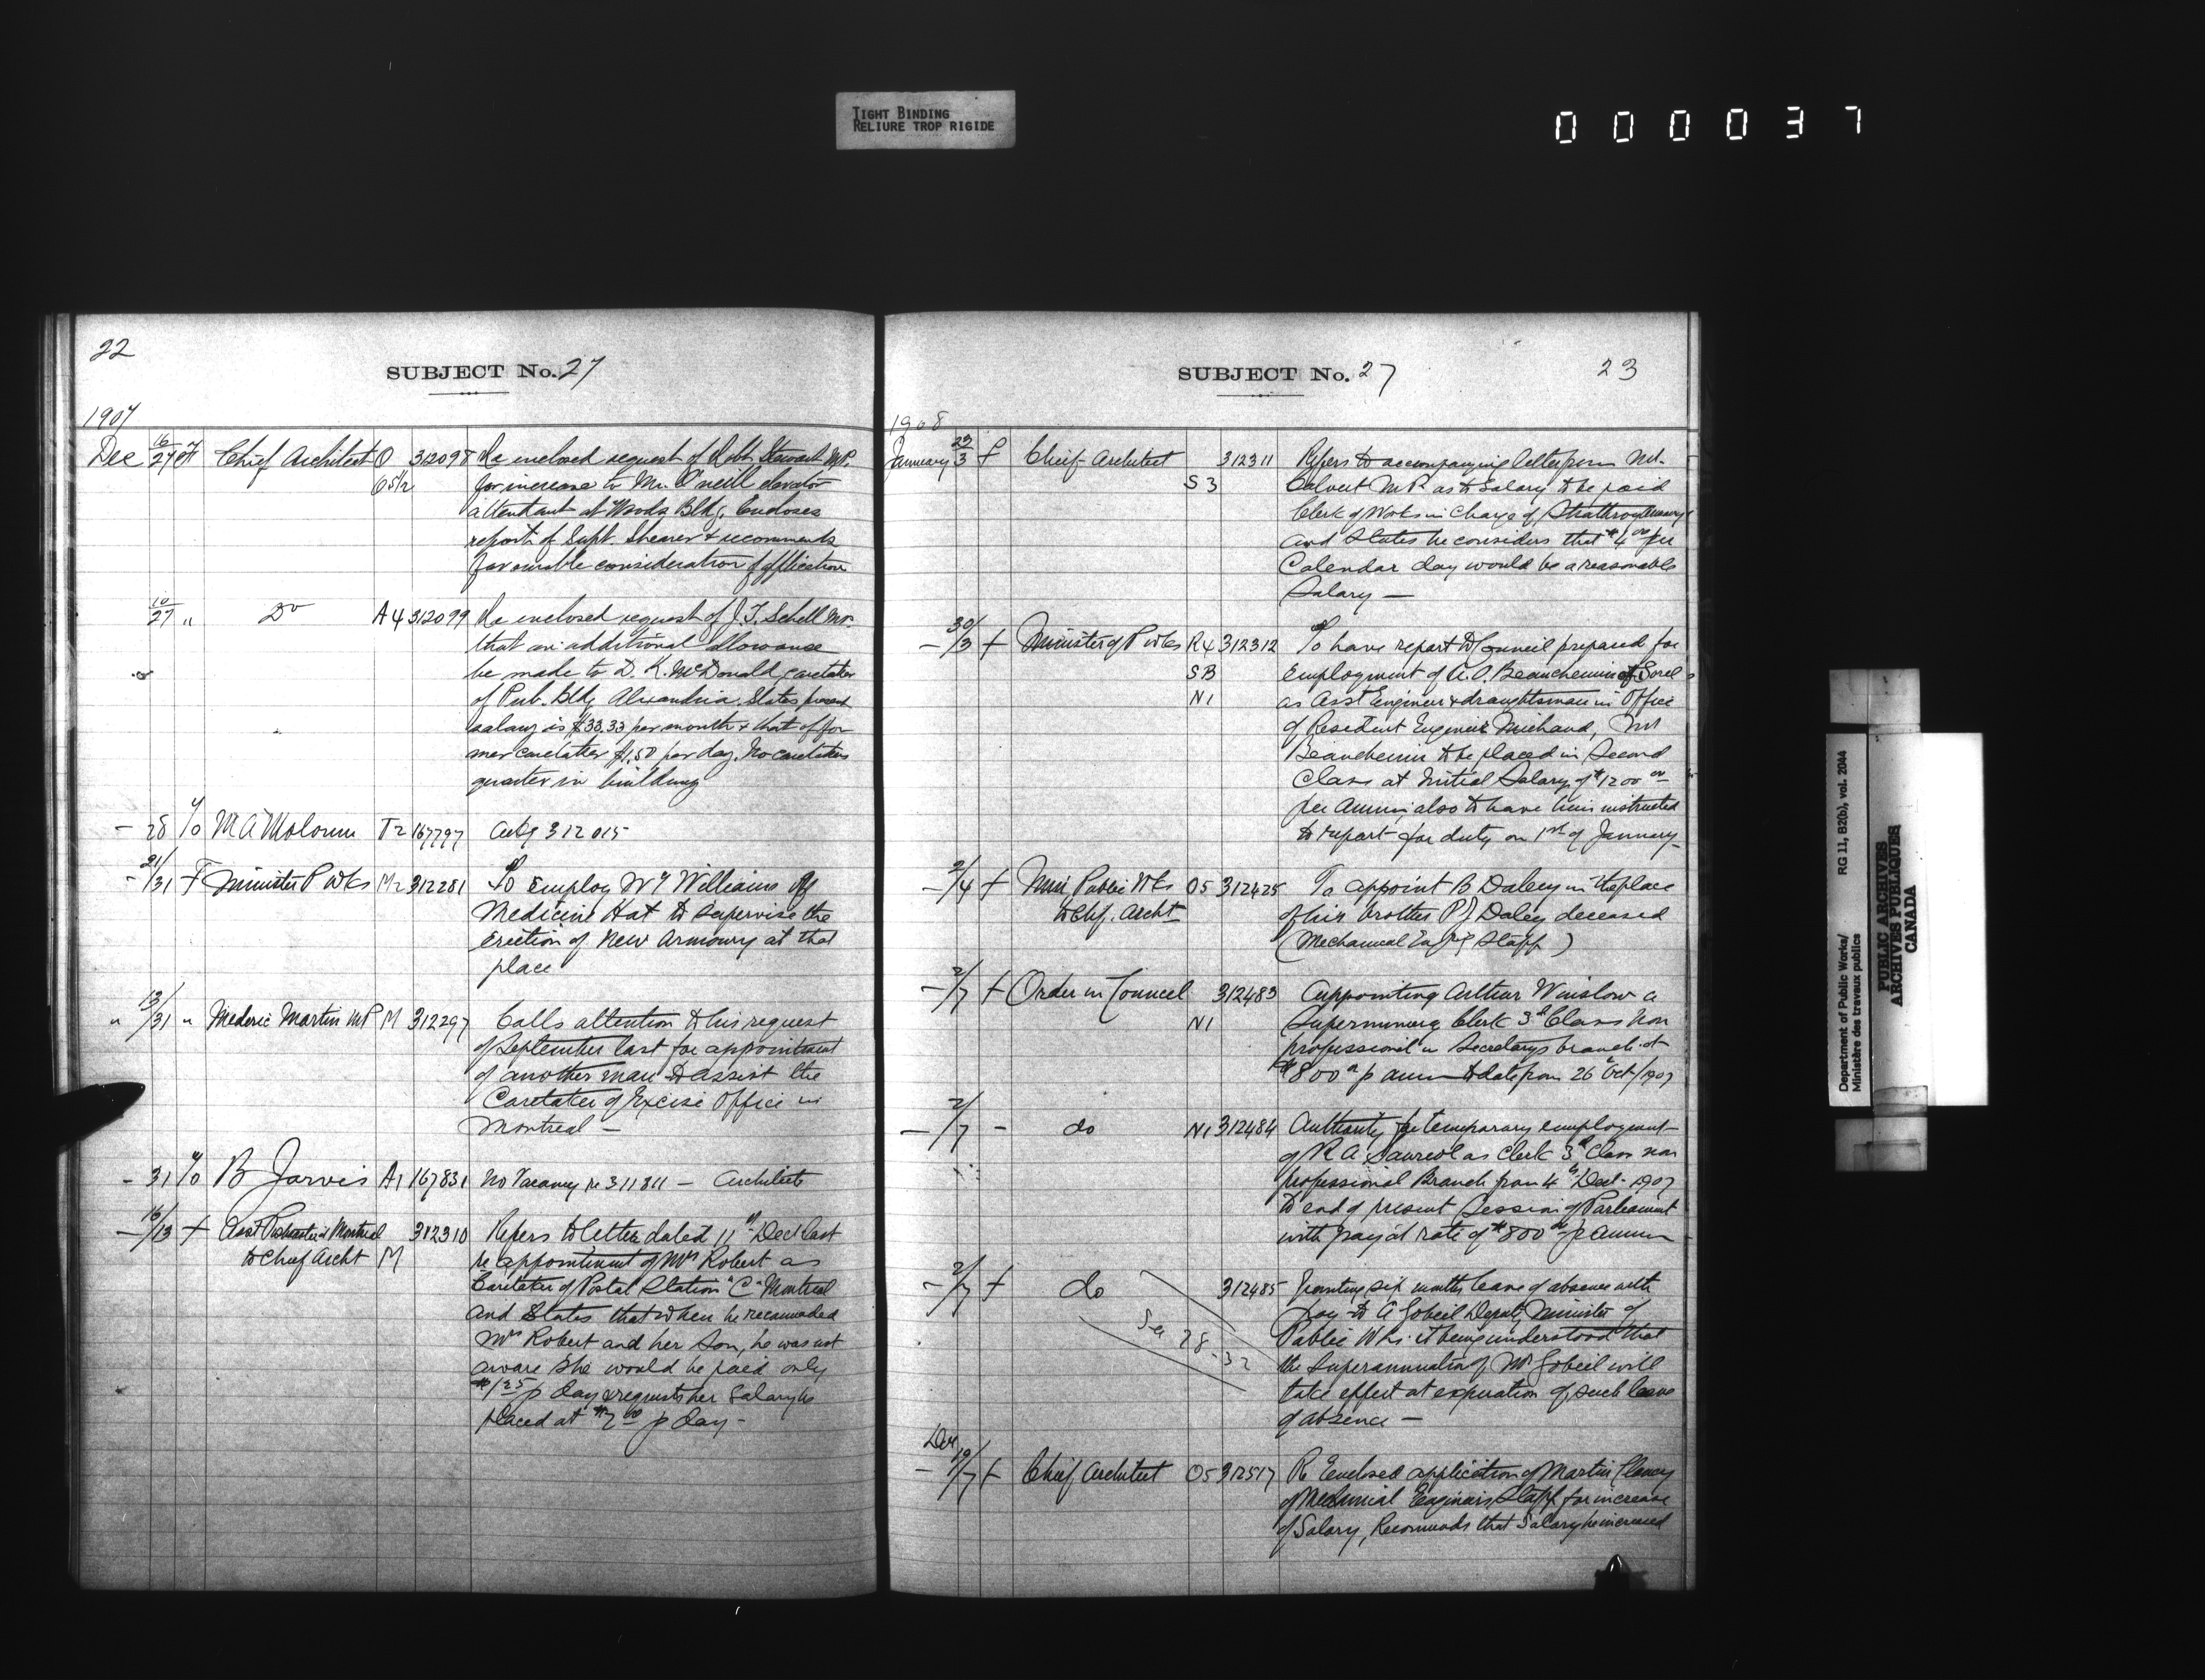 TIGHT BINDING
RELIURE TROP RIGIDE
000037
22
SUBJECT No. 27
1907
Dec 16/27 Chief Architect O 312098 Re enclosed request of Robt Stewart M.P.
O 5 1/2 for increase to Mr. O'neill elevator
attendant at Woods Bldg. Encloses
report of Supt. Shearer & recommends
favourable consideration of application
10/27 " Do A4 312099 Re enclosed request of J. T. Schell M.P.
that an additional allowance
be made to D. K. McDonald, caretaker
of Pub. Bldg Alexandria. States present
salary is $33.33 per month & that of for
mer caretaker $1.50 per day. No caretakers
quarter in building
- 28 M A T2 167797 312015
- 21/31 F Minister P Wks M2 312281 To Employ Wm Williams of
Medicine Hat to supervise the
Erection of New Armoury at that
place
" 13/31 " Mederic Martin MP M 312297 Calls attention to his request
of September last for appointment
of another man to assist the
Caretaker of Excise Office in
Montreal -
- 31 B Jarvis A1 167831 No Vacancy re 311811 - Architects
- 16/13 f Asst Postmaster Montreal 312310 Refers to letter dated 11th Dect last
to Chief Archt M re appointment of Mrs Robert as
Caretaker of Postal Station "C" Montreal
and States that when he recommended
Mrs Robert and her Son, he was not
aware she would be paid only
$1.25 p day & requests her Salary be
placed at $2.00 p day -
SUBJECT No. 27
23
1908
January 23/3 f Chief Architect 312311 Refers to accompanying letter from Mr.
S3 Calvert M.P. as to Salary to be paid
Clerk of Works in Charge of Strathroy Armoury
and States he considers that $4.00 per
Calendar day would be a reasonable
Salary -
- 30/3 f Minister of P Wks R4 312312 To have report to Council prepared for
SB Employment of A. O. Beauchemin of Sorel
N1 as Asst Engineer & draughtsman in Office
of Resident Engineer Michaud, Mr
Beauchemin to be placed in Second
Class at Initial Salary of $1200.00
per Annum; also to have him instructed
to report for duty on 1st of January -
- 2/4 f Min Public Wks O5 312425 To appoint B Daley in the place
to Chf. Archt of his brother P J Daley deceased
(Mechanical Eng's Staff)
- 2/7 f Order in Council 312483 Appointing Arthur Winslow a
N1 Supernumery Clerk 3d Class Non
professional in Secretarys branch at
$800.00 p ann to date from 26 Oct/1907
- 2/7 - do N1 312484 Authority for temporary employment
of R A Sauriol as Clerk 3d Class non
professional Branch from 4th Dect. 1907
to end of present Session of Parliament
with pay at rate of $800.00 p annum
- 2/7 f do 312485 Granting six months leave of absence with
pay to A Gobeil Deputy Minister of
See 28-32 Public Wks. it being understood that
the Superannuation of Mr Gobeil will
take effect at expiration of such leave
of absence -
Dec
- 19/7 f Chief Architect O5 312517 Re Enclosed application of Martin Clancy
of Mechanical Engineers Staff for increase
of Salary, Recommends that Salary be increased
Department of Public Works/ RG 11, B2(b), vol. 2044
Ministère des travaux publics
PUBLIC ARCHIVES
ARCHIVES PUBLIQUES
CANADA